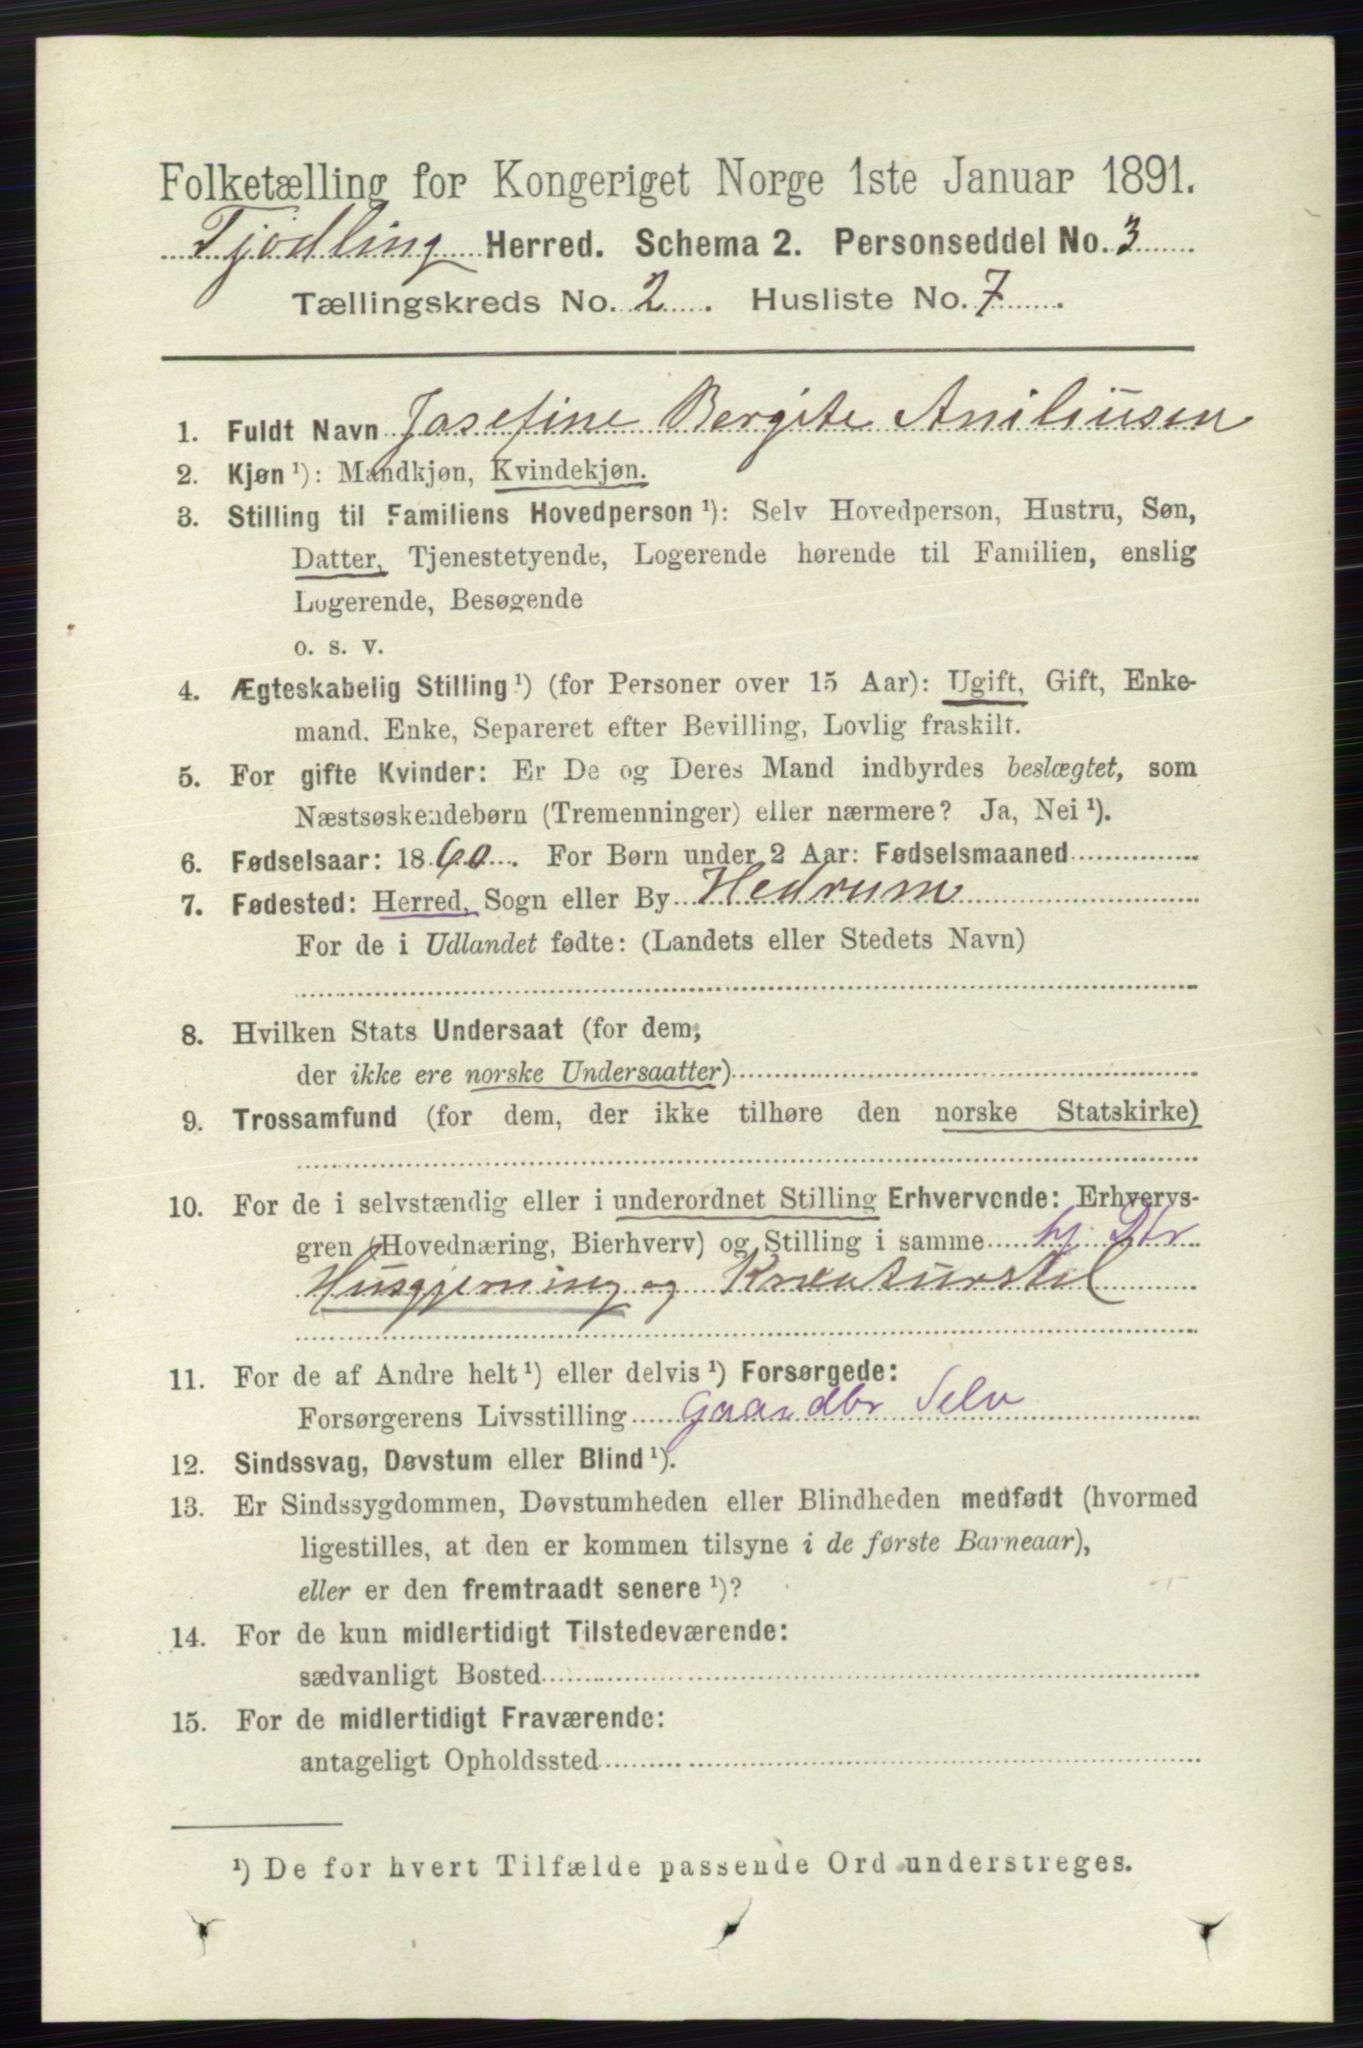 Folketælling for Kongeriget Norge 1ste Januar 1891.
Tjodling Herred. Schema 2. Personseddel No. 3
Tællingskreds No. 2. Husliste No. 7.
1. Fuldt Navn Josefine Bergite Aniliusen
2. Kjøn ¹): Mandkjøn, Kvindekjøn.
3. Stilling til Familiens Hovedperson ¹): Selv Hovedperson, Hustru, Søn,
Datter, Tjenestetyende, Logerende hørende til Familien, enslig
Logerende, Besøgende
o. s. v.
4. Ægteskabelig Stilling ¹) (for Personer over 15 Aar): Ugift, Gift, Enke-
mand. Enke, Separeret efter Bevilling, Lovlig fraskilt.
5. For gifte Kvinder: Er De og Deres Mand indbyrdes beslægtet, som
Næstsøskendebørn (Tremenninger) eller nærmere? Ja, Nei ¹).
6. Fødselsaar: 1860. For Børn under 2 Aar: Fødselsmaaned
7. Fødested: Herred, Sogn eller By Hedrum
For de i Udlandet fødte: (Landets eller Stedets Navn)
8. Hvilken Stats Undersaat (for dem,
der ikke ere norske Undersaatter)
9. Trossamfund (for dem, der ikke tilhøre den norske Statskirke)
10. For de i selvstændig eller i underordnet Stilling Erhvervende: Erhvervs-
gren (Hovednæring, Bierhverv) og Stilling i samme hj. Dtr
Husgjerning og Kreaturstel
11. For de af Andre helt ¹) eller delvis ¹) Forsørgede:
Forsørgerens Livsstilling Gaardbr Selv
12. Sindssvag, Døvstum eller Blind ¹).
13. Er Sindssygdommen, Døvstumheden eller Blindheden medfødt (hvormed
ligestilles, at den er kommen tilsyne i de første Barneaar),
eller er den fremtraadt senere ¹)?
14. For de kun midlertidigt Tilstedeværende:
sædvanligt Bosted
15. For de midlertidigt Fraværende:
antageligt Opholdssted
¹) De for hvert Tilfælde passende Ord understreges.